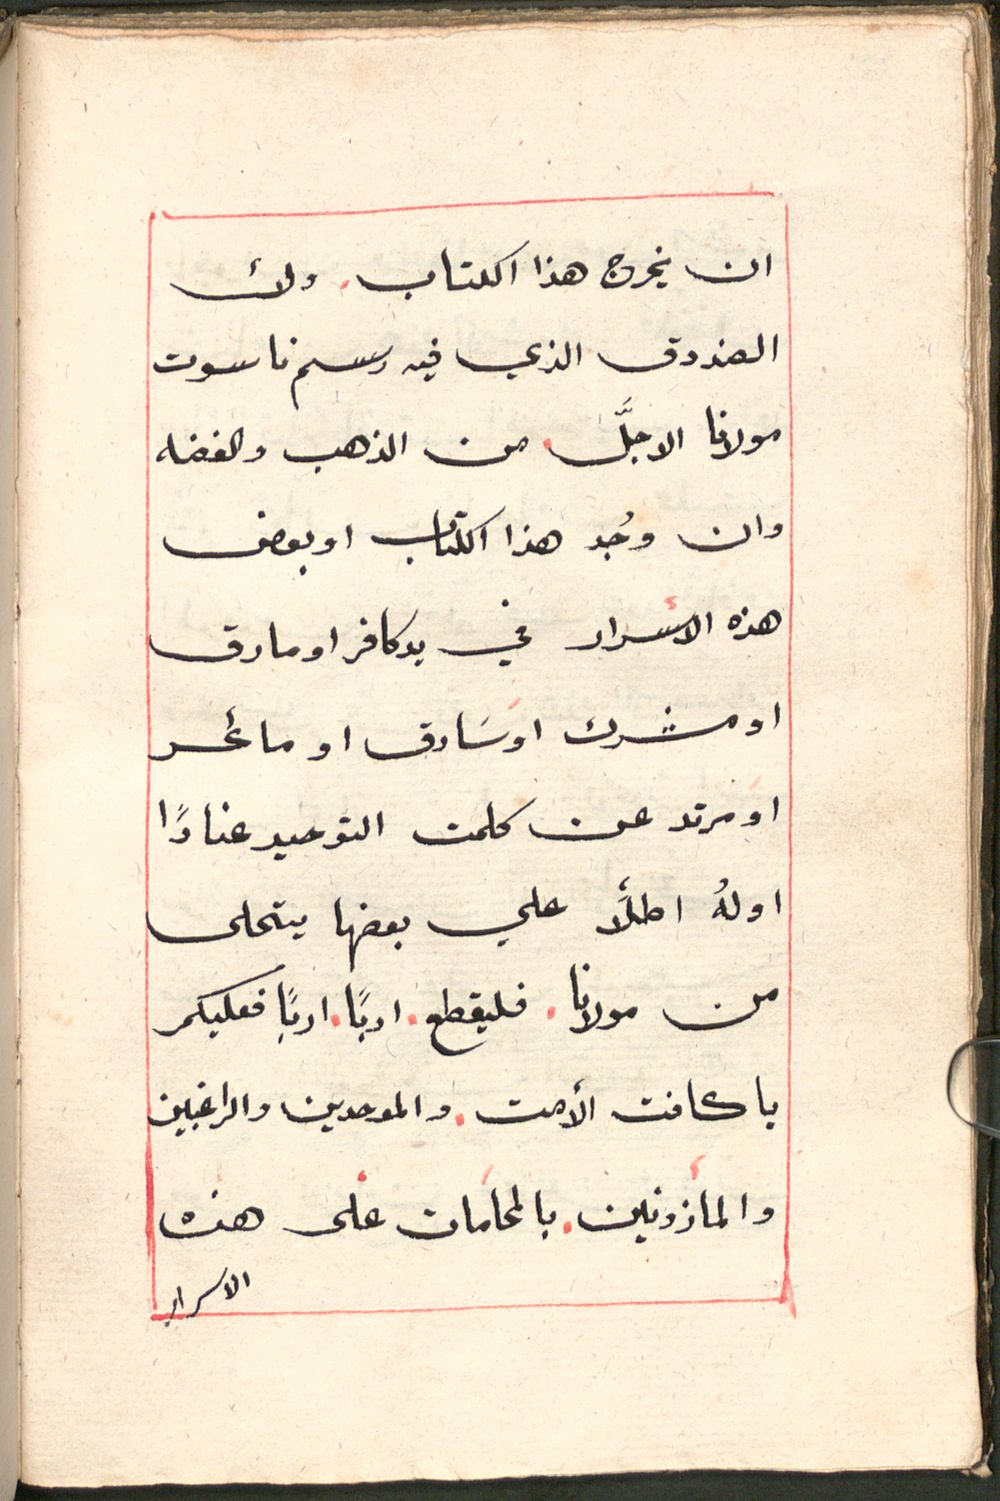 ان نخرج هذا الكتاب . ولا
الصندوق الذي فيه رسم ناسوت
مولانا الاجلَّ . من الذهب والفضه
وان وُجد هذا الكتاب او بعض
هذه الاسرار في يد كافر او مارق
او مشرك او سَارق او ما
او مرتد عن كلمت التوحيد عنادًا
او لهُ اطلاَّ علي بعضها يتخلى
من مولانا . فليقطع . اربًا . اربًا فعليكم
يا كافت الأمت . والموحدين والراغبين
والمأزونين . بالمحامات على هذه
الاسرار